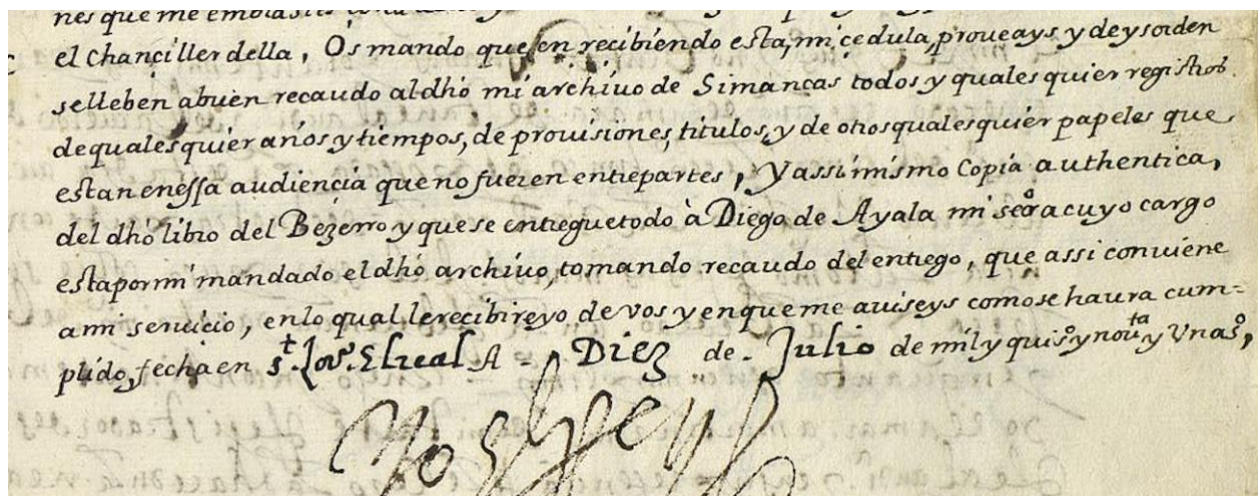 nes que me embiastis
el Chançiller della, Os mando que en recibiendo esta, mi çedula, proueays y deys orden
se lleben a buen recaudo al dho mi archiuo de Simancas todos y quales quier registros
de quales quier años y tiempos, de prouisiones, titulos, y de otros quales quier papeles que
estan en essa audiencia que no fueren entre partes, Y assi mismo Copia authentica,
del dho libro del Bezerro y que se entregue todo à Diego de Ayala mi secro a cuyo cargo
esta por mi mandado el dho archiuo, tomando recaudo del entrego, que assi conuiene
a mi seruicio, en lo qual le recibire yo de vos y en que me auiseys como se haura cum=
plido, fecha en st. Loro. El real A - Diez de - Julio de mil y quiso y nouta y Un aos,
Yo el Rey